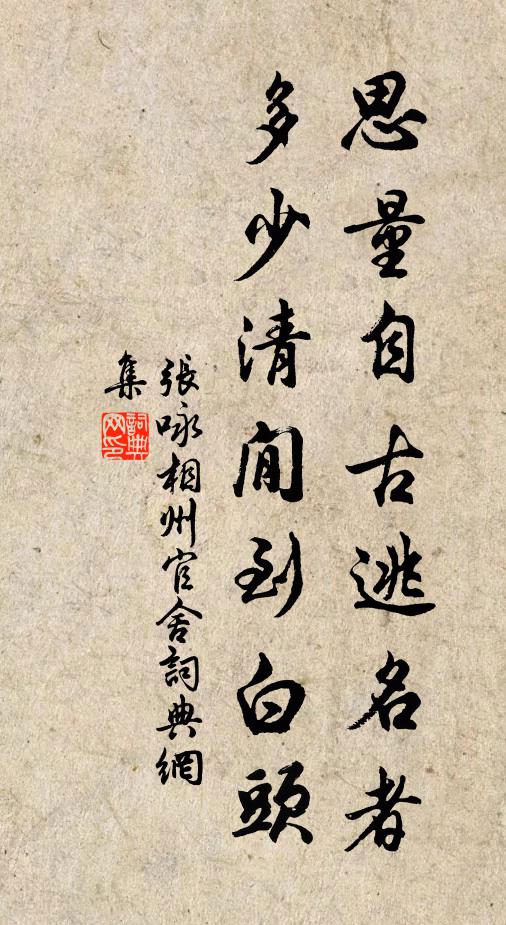 思量自古逃名者
多少清閒到白頭
張咏相州官舍詞典網
集
詞典
网印